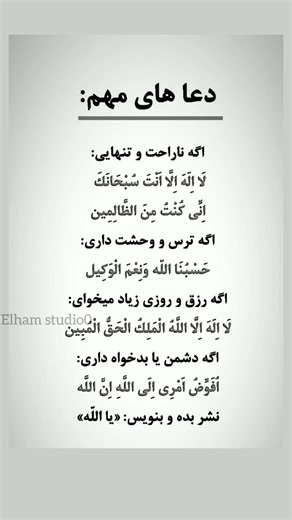 دعا های مهم:
اگه ناراحت و تنهایی:
لَا اِلَهَ اِلَّا اَنْتَ سُبْحَانَكَ
اِنِّی کُنْتُ مِنَ الظَّالِمِین
اگه ترس و وحشت داری:
حَسْبُنَا اللّه وَنِعْمَ الْوَكِیل
اگه رزق و روزی زیاد میخوای:
لَا اِلَهَ اِلَّا اللَّهُ الْمَلِكُ الْحَقُّ الْمُبِین
Elham studio0
اگه دشمن یا بدخواه داری:
اُفَوِّضُ اَمْرِی اِلَی اللَّهِ اِنَّ اللَّه
نشر بده و بنویس: «یا اللّه»